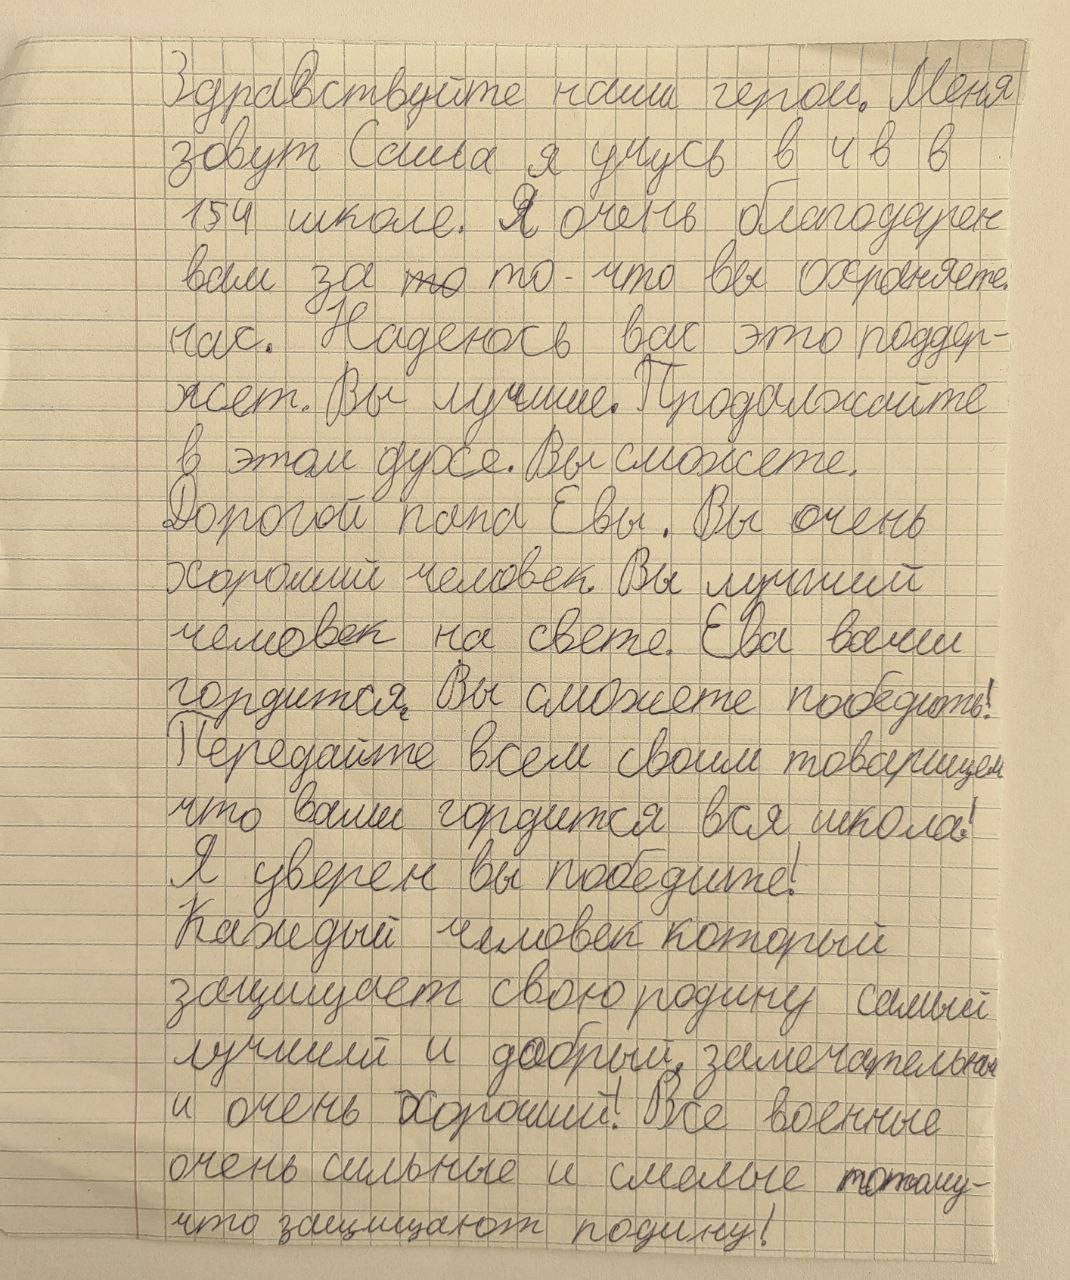 Здравствуйте наши герои. Меня
зовут Саша я учусь в 4 в в
154 школе. Я очень благодарен
вам за то то-что вы охраняете
нас. Надеюсь вас это поддер-
жет. Вы лучшие. Продолжайте
в этом духе. Вы сможете.
Дорогой папа Евы. Вы очень
хороший человек. Вы лучший
человек на свете. Ева вами
гордится. Вы сможете победить!
Передайте всем своим товарищем
что вами гордится вся школа!
Я уверен вы победите!
Каждый человек который
защищает свою родину самый
лучший и добрый, замечательный
и очень хороший! Все военные
очень сильные и смелые потому-
что защищают родину!